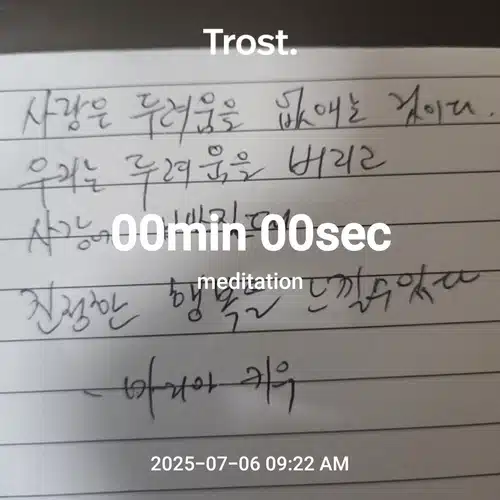 Trost.
사랑은 두려움을 없애는 것이다.
우리는 두려움을 버리고
00min 00sec
meditation
진정한 행복을 느낄수있다
- 마리아 퀴윅
2025-07-06 09:22 AM